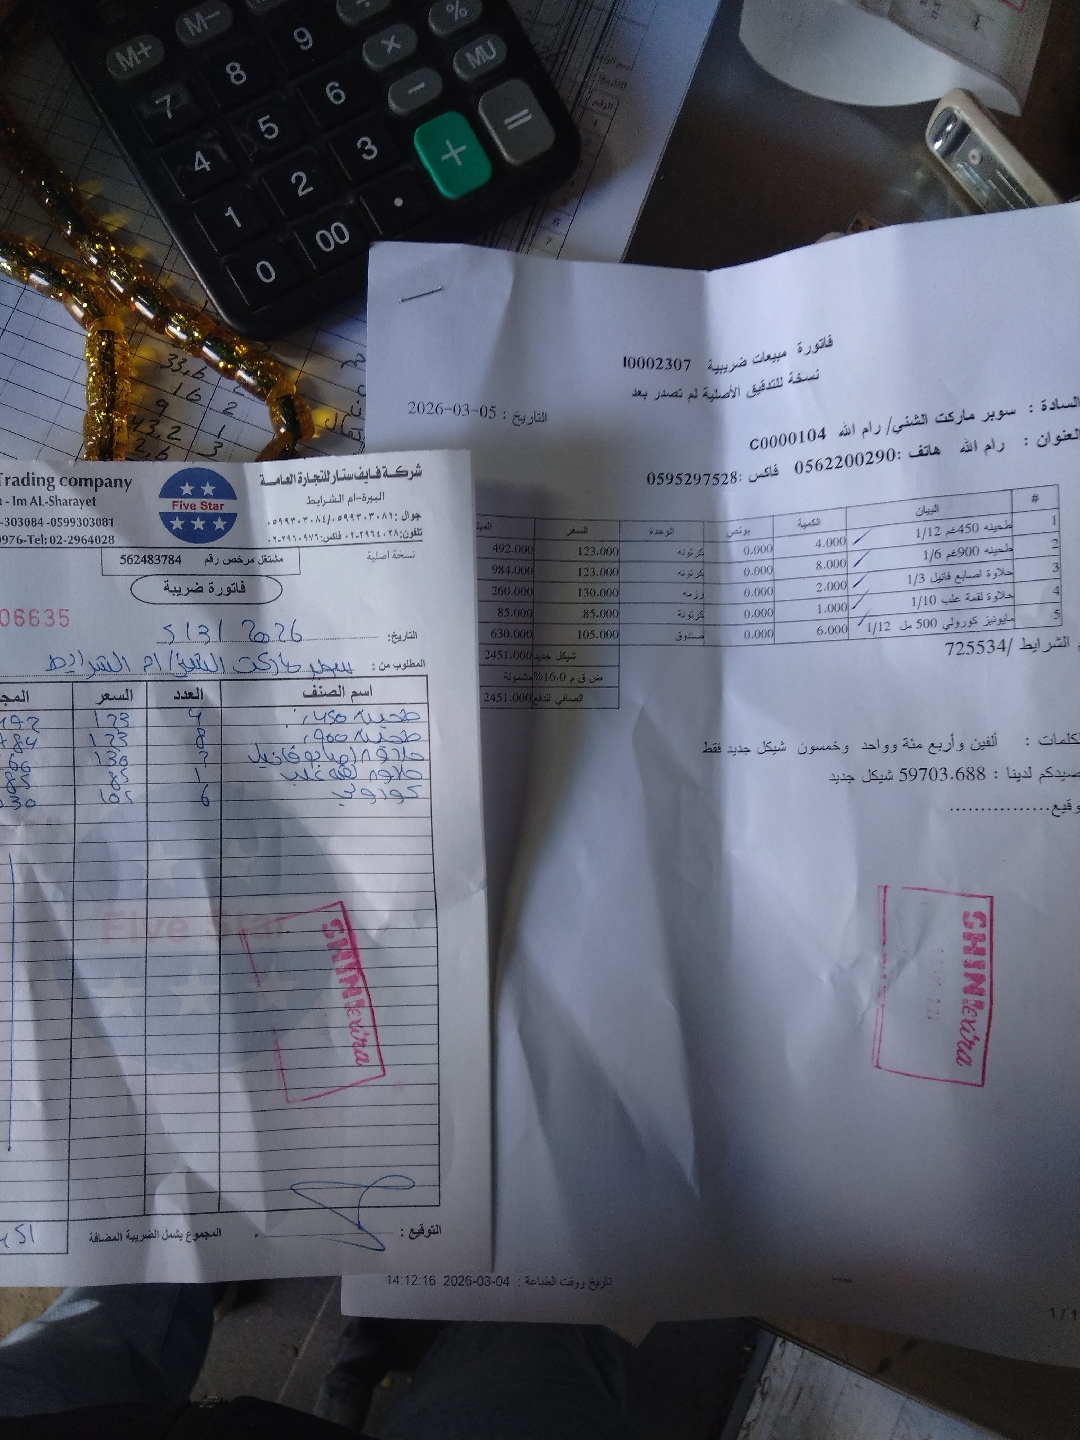 M+ M− ÷ %
7 8 9 × MU
4 5 6 −
1 2 3 + =
0 00 .
33,6
16 2
9
43,2 1
2,6 3
فاتورة مبيعات ضريبية I0002307
نسخة للتدقيق الأصلية لم تصدر بعد
التاريخ : 2026-03-05
السادة : سوبر ماركت الشني/ رام الله C0000104
العنوان : رام الله هاتف :0562200290 فاكس :0595297528
# البيان الكمية بونص الوحدة السعر
1 طحينه 450غم 1/12 4.000 0.000 كرتونه 123.000 492.000
2 طحينه 900غم 1/6 8.000 0.000 كرتونه 123.000 984.000
3 حلاوة اصابع فانيل 1/3 2.000 0.000 رزمه 130.000 260.000
4 حلاوة لقمة علب 1/10 1.000 0.000 كرتونة 85.000 85.000
5 مايونيز كورولي 500 مل 1/12 6.000 0.000 صندوق 105.000 630.000
شيكل جديد 2451.000
ض ق م 16.0% مشمولة
الصافي للدفع 2451.000
الشرايط /725534
كلمات : ألفين وأربع مئة وواحد وخمسون شيكل جديد فقط
صيدكم لدينا : 59703.688 شيكل جديد
وقيع................
SHINI extra
تاريخ ووقت الطباعة : 2026-03-04 14:12:16
1 / 1
Trading company
- Im AL-Sharayet
-303084 -0599303081
0976-Tel: 02-2964028
Five Star
شركة فايف ستار للتجارة العامة
البيرة-ام الشرايط
جوال :٠٥٩٩٣٠٣٠٨١/٠٥٩٩٣٠٣٠٨٤
تلفون:٠٢-٢٩٦٤٠٢٨ فاكس:٠٢-٢٩٦٠٩٧٦
مشتغل مرخص رقم 562483784
نسخة أصلية
فاتورة ضريبة
06635
التاريخ: 5/3/2026
المطلوب من : سوبر ماركت الشني/ ام الشرايط
اسم الصنف العدد السعر المج
طحينة 450 4 123 492
طحينة 900 8 123 984
حلاوة اصابع فانيل 2 130
حلاوة لقمة علب 1 85 85
كورولي 6 105 630
Five Star
SHINI extra
التوقيع :
المجموع يشمل الضريبة المضافة
451